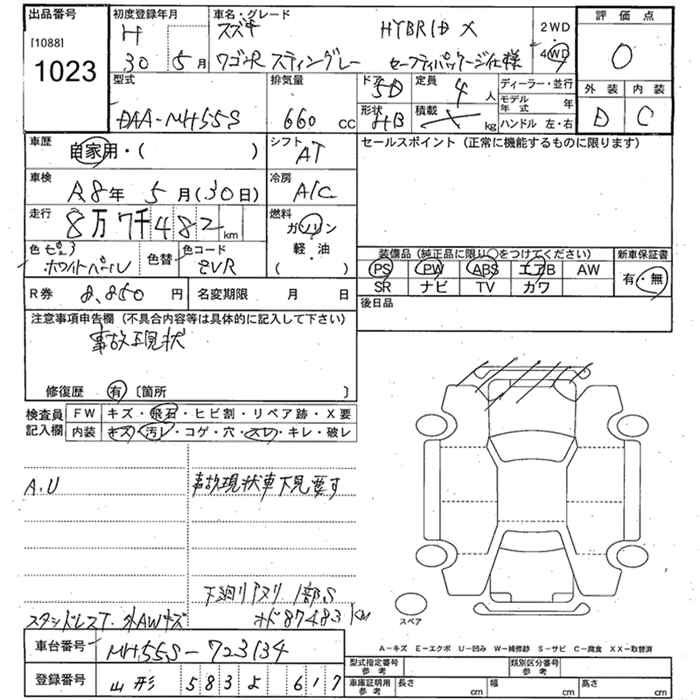 出品番号 初度登録年月 車名・グレード 2WD 4WD 評価点
[1088] 1023 H 30 5月 スズキ HYBRID X
ワゴンR スティングレー セーフティパッケージ仕様 0
型式 排気量 ドア 5D 定員 4人 ディーラー・並行 外装 内装
DAA-MH55S 660 cc 形状 HB 積載 kg モデル年式 年 D C
ハンドル 左・右
車歴 自家用・( ) シフト AT セールスポイント (正常に機能するものに限ります)
車検 R8年 5月(30日) 冷房 A/C
走行 8万7千482 km 燃料 ガソリン・軽・油 ( )
色 ピュアホワイトパール 色替 色コード ZVR
装備品 (純正品に限り○をつけてください) 新車保証書
PS PW ABS エアB AW 有・無
SR ナビ TV カワ
R券 8,850 円 名変期限 月 日 後日品
注意事項申告欄 (不具合内容等は具体的に記入して下さい)
事故現状
修復歴 有 〔箇所 〕
検査員記入欄 FW キズ・飛石・ヒビ割・リペア跡・X要
内装 キズ・汚レ・コゲ・穴・スレ・キレ・破レ
A.U 事故現状車下見要す
下廻りサビ 1部S
スタッドレスT. 外AWキズ 87483 KM
スペア
A-キズ E-エクボ U-凹み W-補修跡 S-サビ C-腐食 XX-取替済
車台番号 MH55S-723134
型式指定番号 参考 類別区分番号 参考
登録番号 山形 583 よ 617
車庫証明用 参考 長さ cm 幅 cm 高さ cm